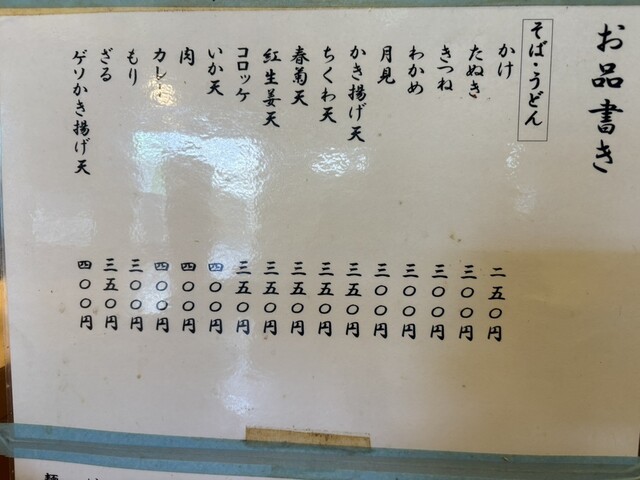 お品書き
そば・うどん
かけ 二五〇円
たぬき 三〇〇円
きつね 三〇〇円
わかめ 三〇〇円
月見 三〇〇円
かき揚げ天 三五〇円
ちくわ天 三五〇円
春菊天 三五〇円
紅生姜天 三五〇円
コロッケ 三五〇円
いか天 四〇〇円
肉 四〇〇円
カレー 四〇〇円
もり 三〇〇円
ざる 三五〇円
ゲソかき揚げ天 四〇〇円